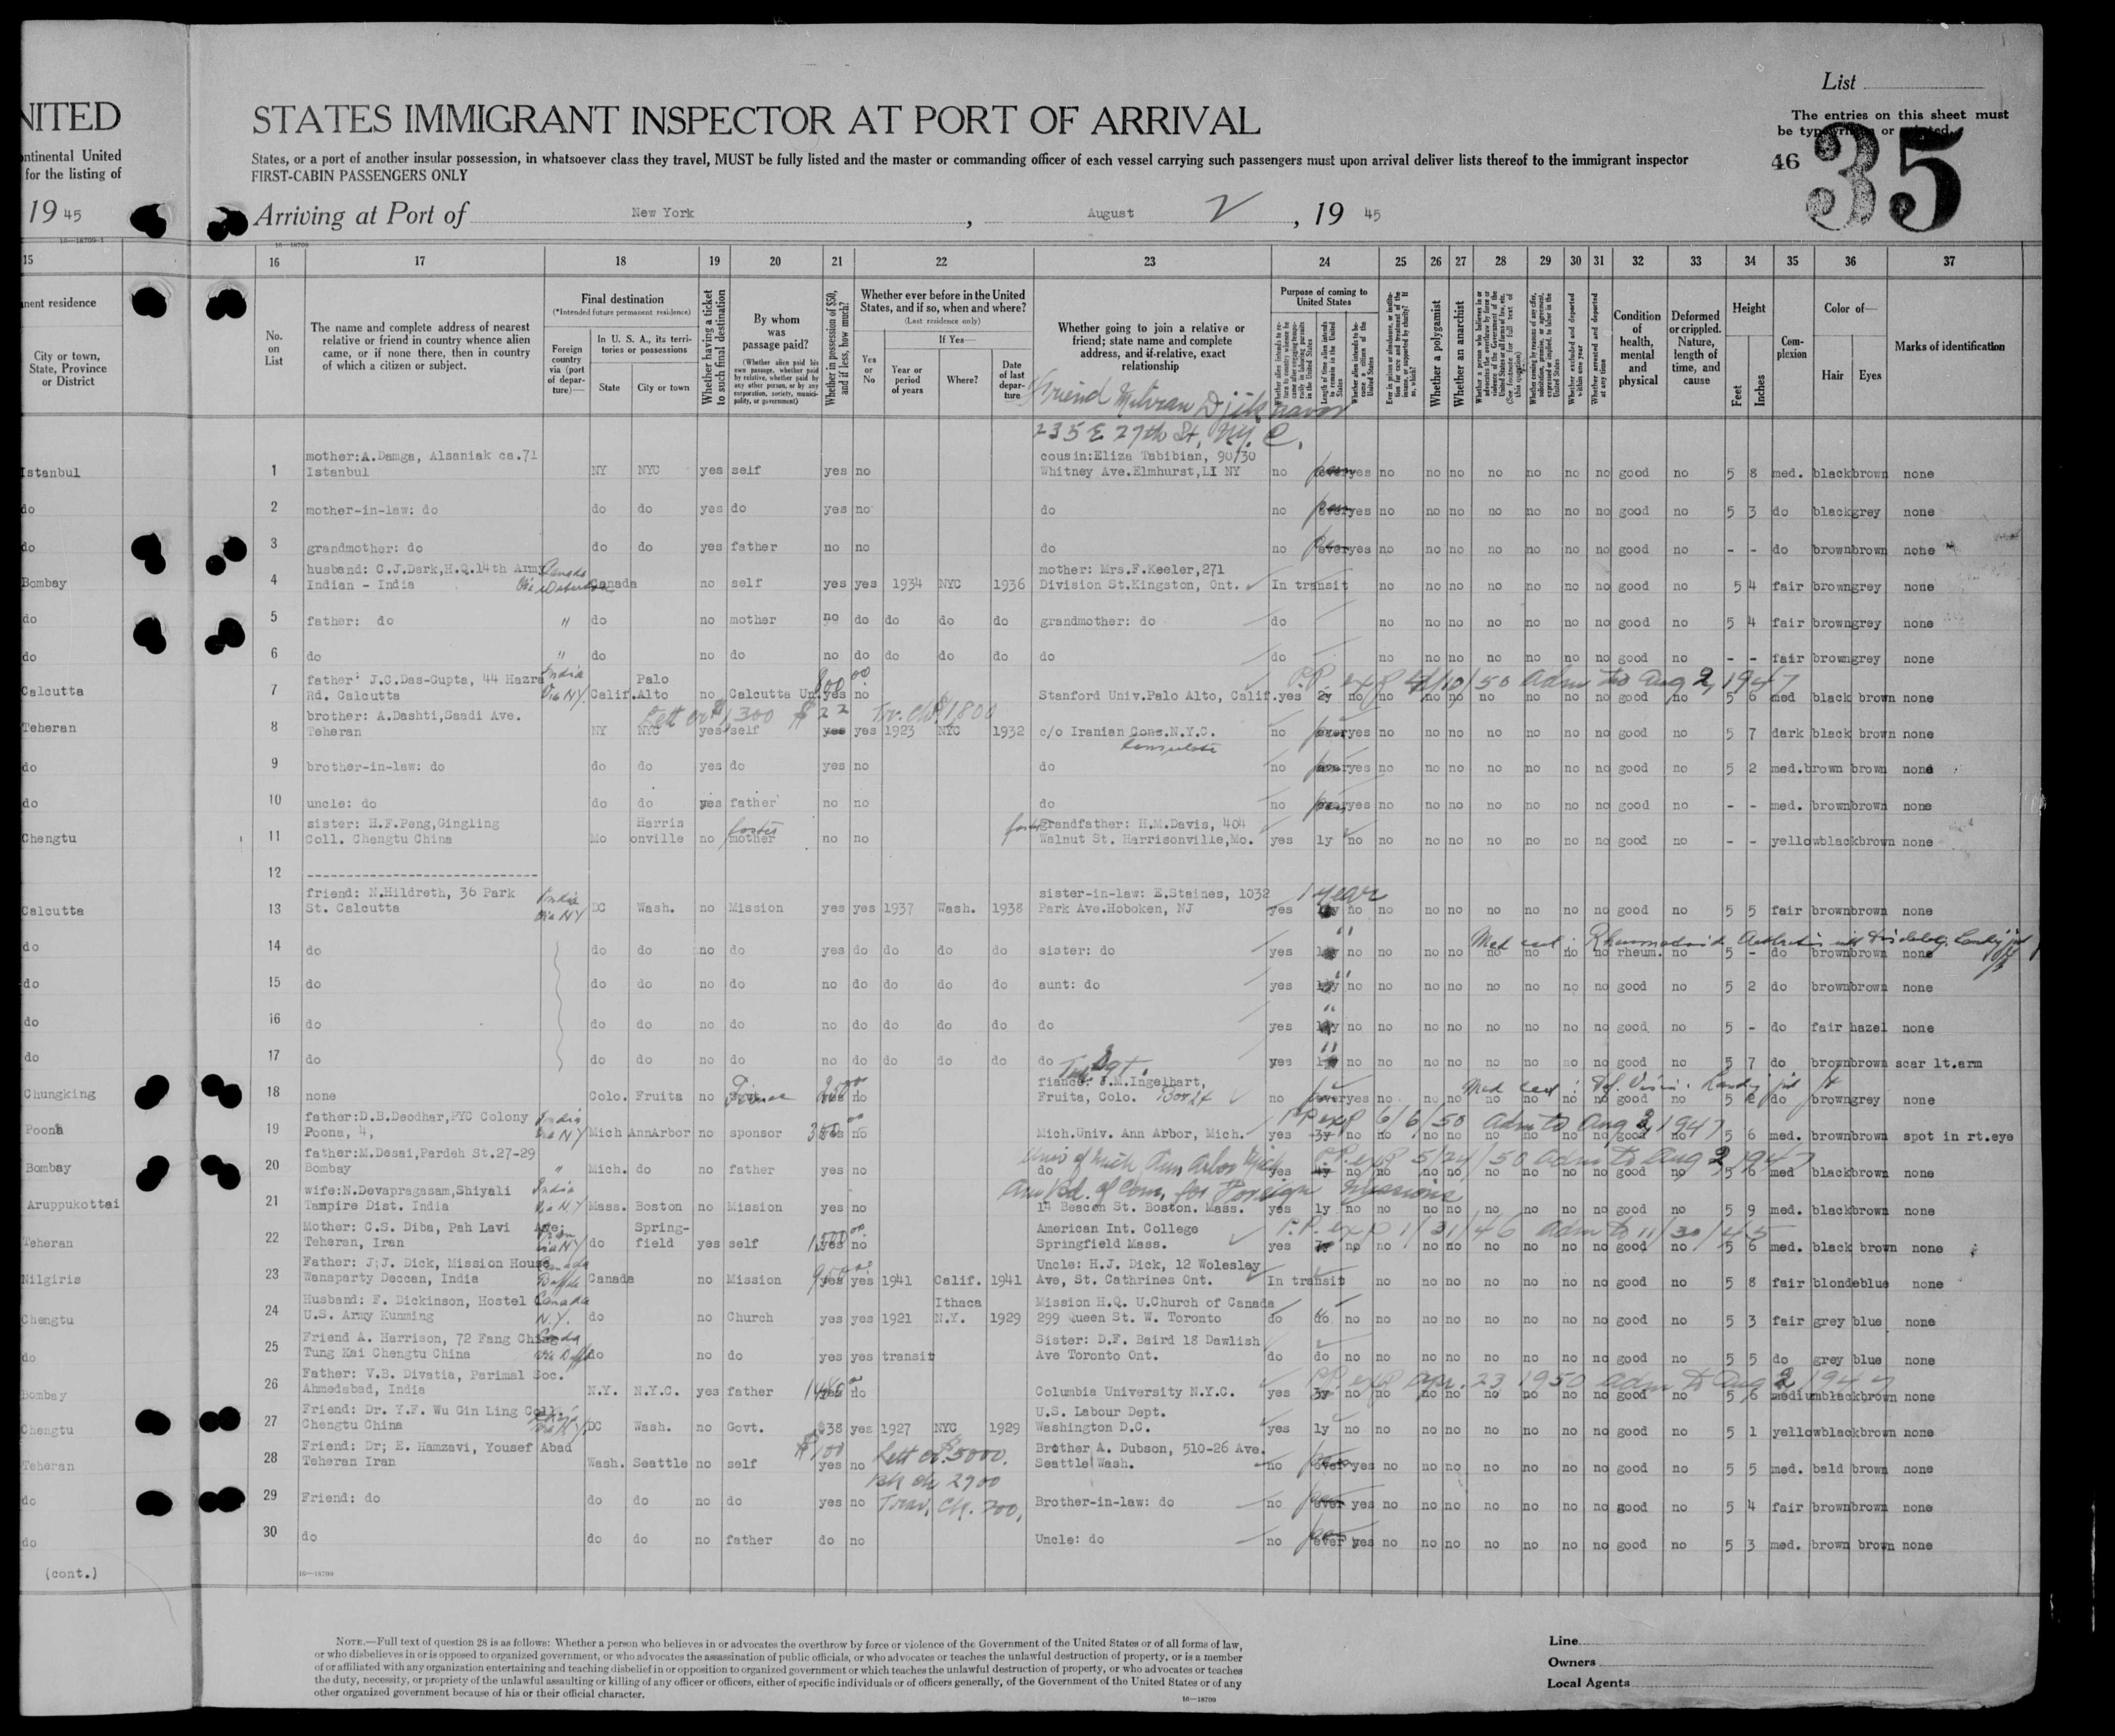 List
The entries on this sheet must
be typewritten or printed.
46
35
NITED
STATES IMMIGRANT INSPECTOR AT PORT OF ARRIVAL
ntinental United
for the listing of
States, or a port of another insular possession, in whatsoever class they travel, MUST be fully listed and the master or commanding officer of each vessel carrying such passengers must upon arrival deliver lists thereof to the immigrant inspector
FIRST-CABIN PASSENGERS ONLY
19 45
Arriving at Port of New York, August 2, 19 45
15 16 17 18 19 20 21 22 23 24 25 26 27 28 29 30 31 32 33 34 35 36 37
nent residence
City or town, State, Province or District
No. on List
The name and complete address of nearest relative or friend in country whence alien came, or if none there, then in country of which a citizen or subject.
Final destination
(*Intended future permanent residence)
Foreign country via (port of departure)—
In U. S. A., its territories or possessions
State
City or town
Whether having a ticket to such final destination
By whom was passage paid?
(Whether alien paid his own passage, whether paid by relative, whether paid by any other person, or by any corporation, society, municipality, or government)
Whether in possession of $50, and if less, how much?
Whether ever before in the United States, and if so, when and where?
(Last residence only)
Yes or No
If Yes—
Year or period of years
Where?
Date of last departure
Whether going to join a relative or friend; state name and complete address, and if relative, exact relationship
Purpose of coming to United States
Length of time alien intends to remain in the United States
Whether alien intends to become a citizen of the United States
Whether a polygamist
Whether an anarchist
Whether excluded and deported within one year
Whether arrested and deported at any time
Condition of health, mental and physical
Deformed or crippled. Nature, length of time, and cause
Height
Feet
Inches
Complexion
Color of—
Hair
Eyes
Marks of identification
Friend
235 E 27th St, NY. C.
mother:A.Damga, Alsaniak ca.71 cousin:Eliza Tabibian, 90/30
Istanbul 1 Istanbul NY NYC yes self yes no Whitney Ave.Elmhurst,LI NY no yes no no no no no no no good no 5 8 med. black brown none
do 2 mother-in-law: do do do yes do yes no do no yes no no no no no no no good no 5 3 do black grey none
do 3 grandmother: do do do yes father no no do no yes no no no no no no no good no - - do brown brown none
husband: C.J.Dark,H.Q.14th Army Canada mother: Mrs.F.Keeler,271
Bombay 4 Indian - India Canada no self yes yes 1934 NYC 1936 Division St.Kingston, Ont. In transit no no no no no no no good no 5 4 fair brown grey none
do 5 father: do " do no mother no do do do do grandmother: do do no no no no no no no good no 5 4 fair brown grey none
do 6 do " do no do no do do do do do do no no no no no no no good no - - fair brown grey none
father: J.C.Das-Gupta, 44 Hazra India Palo 800.00 P.P. exp 4/10/50 adm to Aug 2, 1947
Calcutta 7 Rd. Calcutta Via NY Calif. Alto no Calcutta Un. yes no Stanford Univ.Palo Alto, Calif. yes 2y no no no no no no no no good no 5 6 med black brown none
brother: A.Dashti,Saadi Ave. Lett cr $1,300 $22 Tr. Ck $1,800
Teheran 8 Teheran NY NYC yes self yes yes 1923 NYC 1932 c/o Iranian Cons.N.Y.C. no yes no no no no no no no good no 5 7 dark black brown none
Consulate
do 9 brother-in-law: do do do yes do yes no do no yes no no no no no no no good no 5 2 med. brown brown none
do 10 uncle: do do do yes father no no do no yes no no no no no no no good no - - med. brown brown none
sister: H.F.Peng,Gingling Harris foster foster grandfather: H.M.Davis, 404
Chengtu 11 Coll. Chengtu China Mo onville no mother no no Walnut St. Harrisonville,Mo. yes 1y no no no no no no no no good no - - yellow black brown none
12 ----------------------------
friend: N.Hildreth, 36 Park India sister-in-law: E.Staines, 1032 1 year
Calcutta 13 St. Calcutta via NY DC Wash. no Mission yes yes 1937 Wash. 1938 Park Ave.Hoboken, NJ yes no no no no no no no no good no 5 5 fair brown brown none
" Med cert: Rheumatoid Arthritis
do 14 do do do no do yes do do do do sister: do yes no no no no no no no no rheum. no 5 - do brown brown none
do 15 do do do no do no do do do do aunt: do yes " no no no no no no no no good no 5 2 do brown brown none
do 16 do do do no do no do do do do do yes " no no no no no no no no good no 5 - do fair hazel none
do 17 do do do no do no do do do do do yes " no no no no no no no no good no 5 7 do brown brown scar lt.arm
fiance: J.M.Ingelhart, Med cert: Def. Vision.
Chungking 18 none Colo. Fruita no Fiance yes no Fruita, Colo. Box 24 no yes no no no no no no no good no 5 2 do brown grey none
father:D.B.Deodhar,PYC Colony India P.P. exp 6/6/50 adm to Aug 2, 1947
Poona 19 Poona, 4, via NY Mich AnnArbor no sponsor yes no Mich.Univ. Ann Arbor, Mich. yes 3y no no no no no no no no good no 5 6 med. brown brown spot in rt.eye
father:M.Desai,Pardeh St.27-29 Univ of Mich Ann Arbor Mich P.P. exp 5/24/50 adm to Aug 2 1947
Bombay 20 Bombay " Mich. do no father yes no do yes 4y no no no no no no no no good no 5 6 med black brown none
wife:N.Devapragasam,Shiyali India Am Bd. of Com. for Foreign Missions
Aruppukottai 21 Tampire Dist. India via N.Y Mass. Boston no Mission yes no 14 Beacon St. Boston. Mass. yes 1y no no no no no no no no good no 5 9 med. black brown none
Mother: C.S. Diba, Pah Lavi Ave; Iran Spring- 1,500.00 American Int. College P.P. exp 1/31/46 adm to 11/30/45
Teheran 22 Teheran, Iran via NY do field yes self yes no Springfield Mass. yes no no no no no no no no good no 5 6 med. black brown none
Father: J.J. Dick, Mission House Canada Uncle: H.J. Dick, 12 Wolesley
Nilgiris 23 Wanaparty Deccan, India Canada no Mission yes yes 1941 Calif. 1941 Ave, St. Cathrines Ont. In transit no no no no no no no good no 5 8 fair blonde blue none
Husband: F. Dickinson, Hostel Canada Ithaca Mission H.Q. U.Church of Canada
Chengtu 24 U.S. Army Kunming N.Y. do no Church yes yes 1921 N.Y. 1929 299 Queen St. W. Toronto do do no no no no no no no no good no 5 3 fair grey blue none
Friend A. Harrison, 72 Fang Ching Sister: D.F. Baird 18 Dawlish
do 25 Tung Kai Chengtu China do no do yes yes transit Ave Toronto Ont. do do no no no no no no no no good no 5 5 do grey blue none
Father: V.B. Divatia, Parimal Soc. P.P. exp Apr. 23 1950 adm to Aug 2 1947
Bombay 26 Ahmedabad, India N.Y. N.Y.C. yes father yes no Columbia University N.Y.C. yes 3y no no no no no no no no good no 5 6 medium black brown none
Friend: Dr. Y.F. Wu Gin Ling Coll. U.S. Labour Dept.
Chengtu 27 Chengtu China DC Wash. no Govt. $38 yes 1927 NYC 1929 Washington D.C. yes 1y no no no no no no no no good no 5 1 yellow black brown none
Friend: Dr; E. Hamzavi, Yousef Abad $100 Lett cr. $5000. Brother A. Dubson, 510-26 Ave.
Teheran 28 Teheran Iran Wash. Seattle no self yes no Seattle Wash. no yes no no no no no no no good no 5 5 med. bald brown none
Bk ck 2900
do 29 Friend: do do do no do yes no Trav. Ck. 700, Brother-in-law: do no ever yes no no no no no no no good no 5 4 fair brown brown none
do 30 do do do no father do no Uncle: do no ever yes no no no no no no no good no 5 3 med. brown brown none
(cont.)
16—18709
NOTE.—Full text of question 28 is as follows: Whether a person who believes in or advocates the overthrow by force or violence of the Government of the United States or of all forms of law,
or who disbelieves in or is opposed to organized government, or who advocates the assassination of public officials, or who advocates or teaches the unlawful destruction of property, or is a member
of or affiliated with any organization entertaining and teaching disbelief in or opposition to organized government or which teaches the unlawful destruction of property, or who advocates or teaches
the duty, necessity, or propriety of the unlawful assaulting or killing of any officer or officers, either of specific individuals or of officers generally, of the Government of the United States or of any
other organized government because of his or their official character.
16—18709
Line
Owners
Local Agents